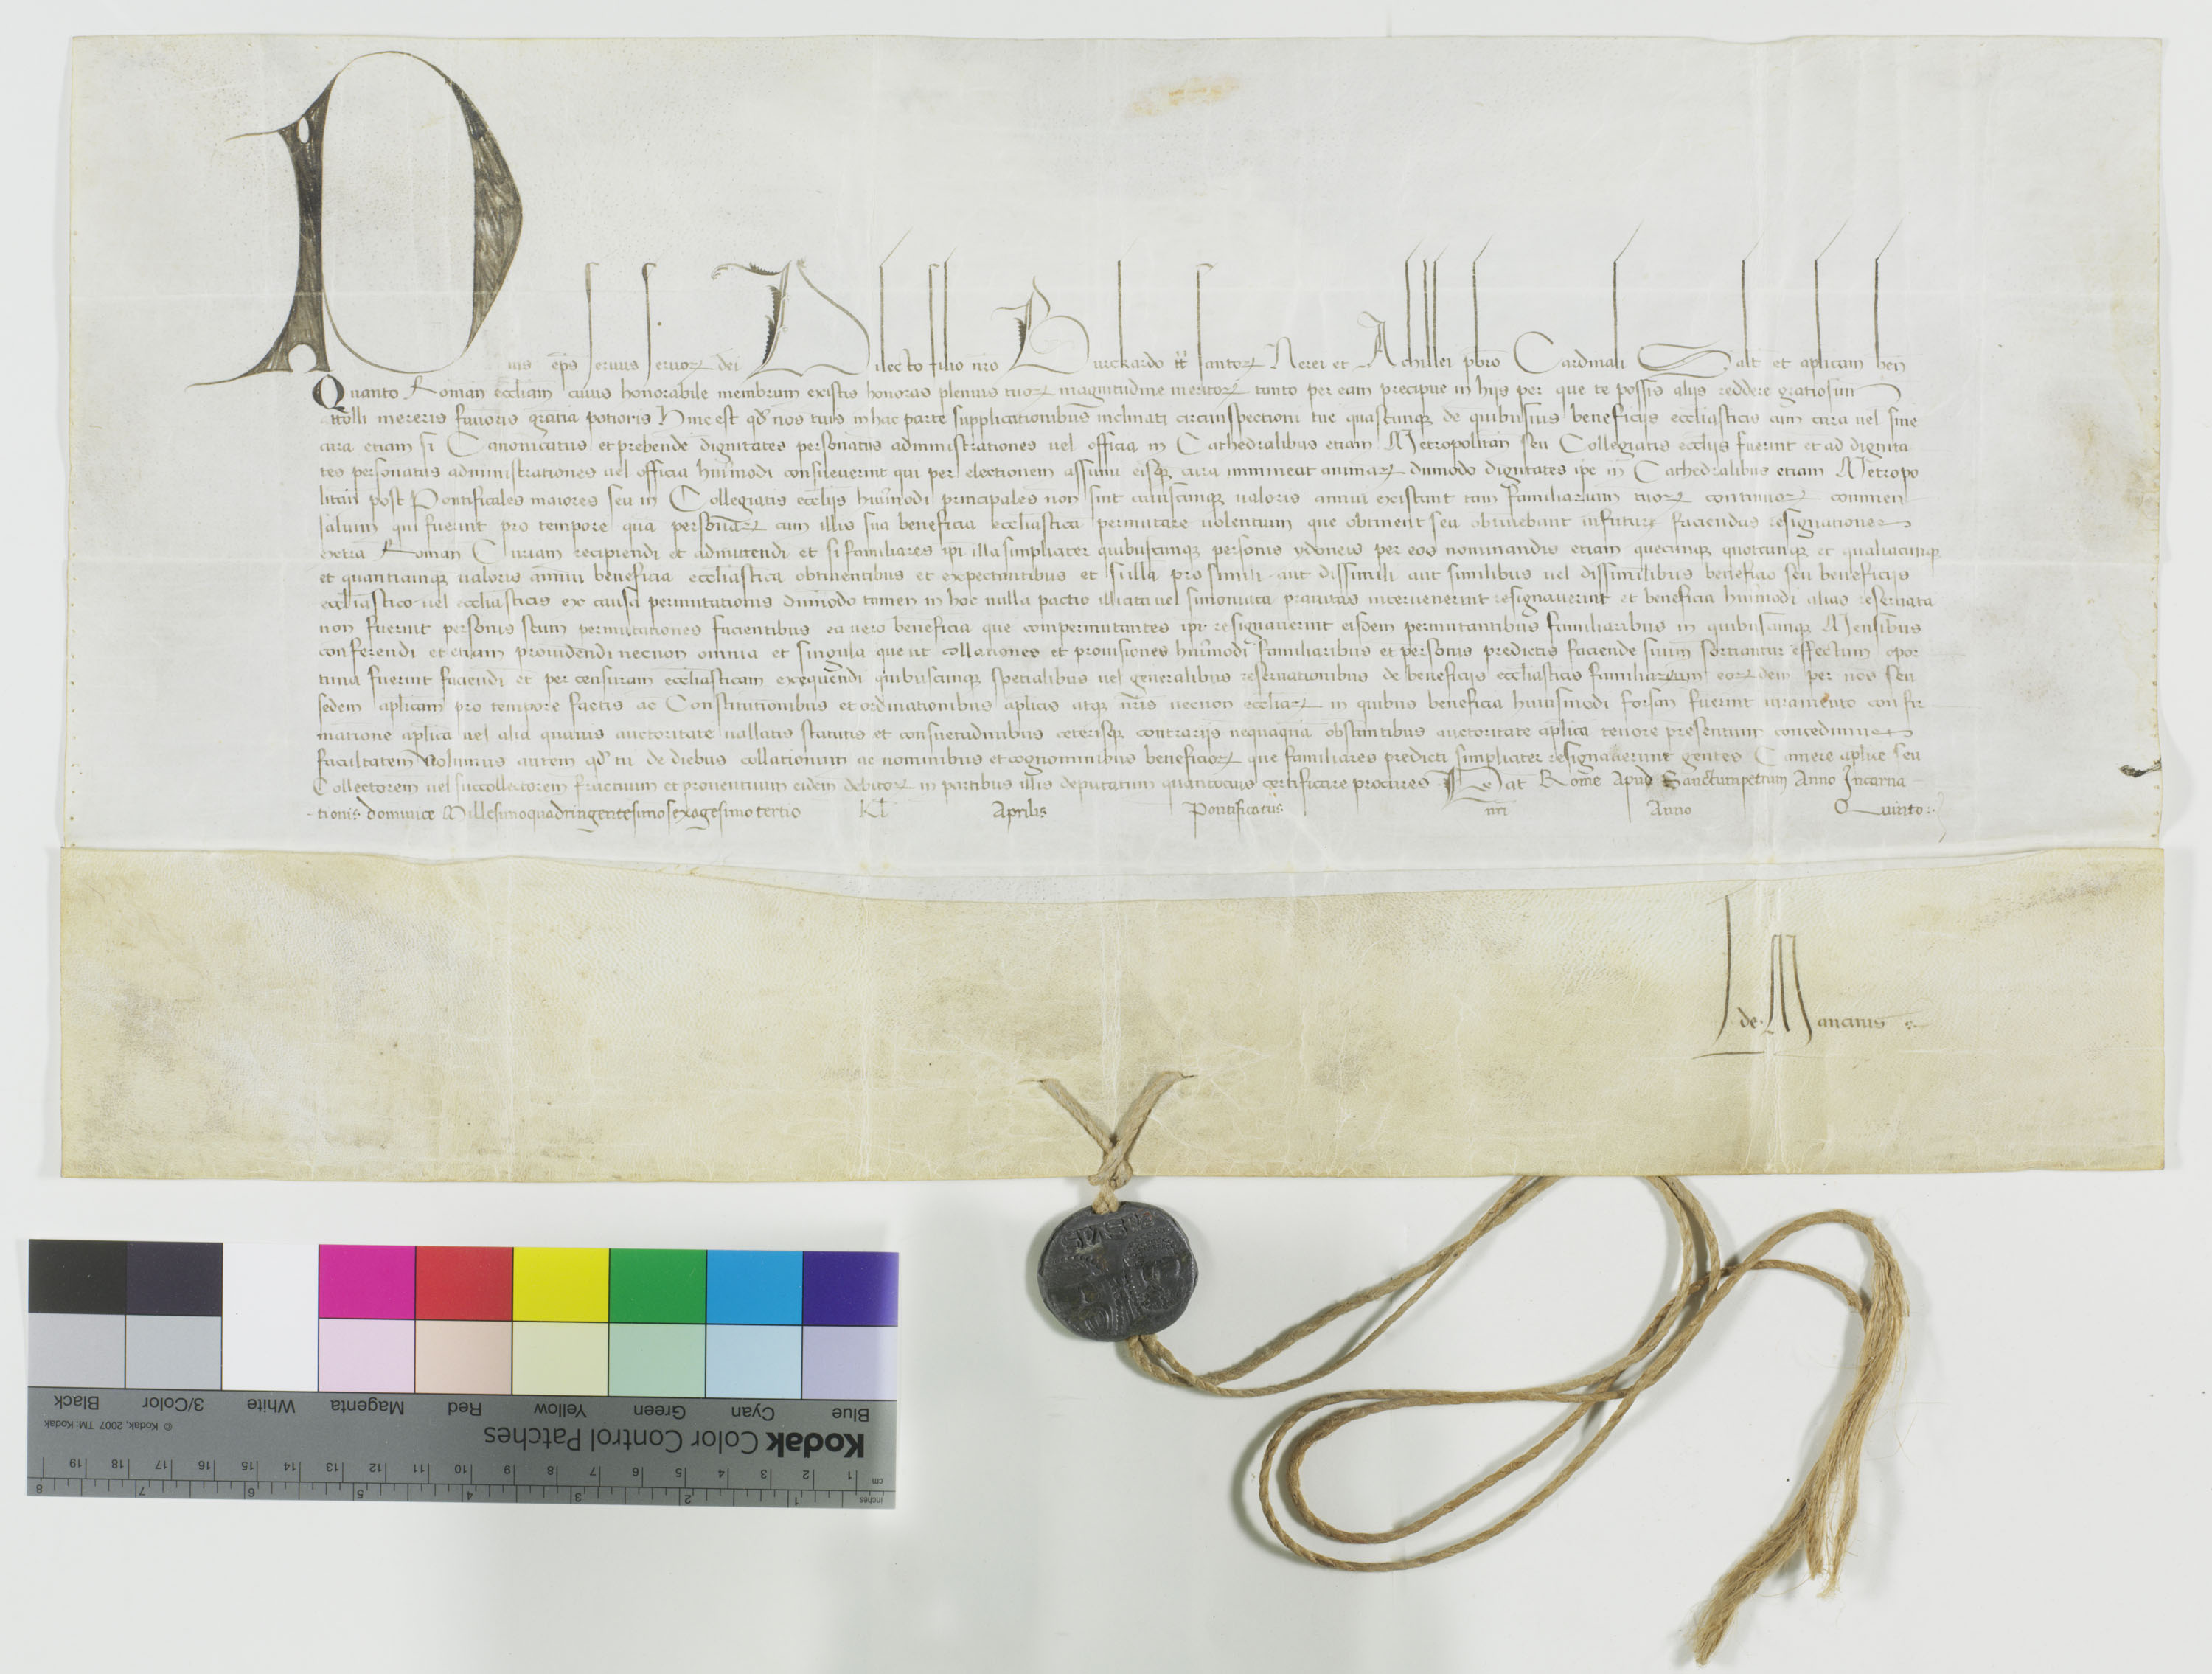 Pius ep̄s seruus seruoꝝ dei Dilecto filio nr̄o Burckardo tt̄ santoꝝ Nerei et Achillei pbr̄o Cardinali Salt̄ et aplicam ben̄
Quanto Roman̄ ecc̄liam cuius honorabile membrum existis honoras plenius tuoꝝ magnitudine meritoꝝ tanto per eam precipue in hijs per que te possis alijs reddere gratiosum
attolli mereris fauoris gratia potioris Hinc est qd̄ nos tuis in hac parte supplicationibus inclinati circunspectioni tue quascunqꝫ de quibusuis beneficijs ecc̄liasticis cum cura uel sine
cura etiam si Canonicatus et prebende dignitates personatus administrationes uel officia in Cathedralibus etiam Metropolitan̄ seu Collegiatis ecc̄lijs fuerint et ad dignita
tes personatus administrationes uel officia hiu͞modi consueuerint qui per electionem assumi eisqꝫ cura immineat animaꝝ dummodo dignitates ip̄e in Cathedralibus etiam Metropo
litan̄ post Pontificales maiores seu in Collegiatis ecc̄lijs hiu͞modi principales non sint cuiuscunqꝫ ualoris annui existant tam familiarium tuoꝝ continuoꝝ commen
salium qui fuerint pro tempore qua͞ personaꝝ cum illis sua beneficia ecc̄liastica permutare uolentium que obtinent seu obtinebunt in futuꝝ faciendas resignationes
extra Roman̄ Curiam recipiendi et admittendi et si familiares ip̄i illa simpliciter quibuscunqꝫ personis ydoneis per eos nominandis etiam quecunqꝫ quotcunqꝫ et qualiacunqꝫ
et quanticunqꝫ ualoris annui beneficia ecc̄liastica obtinentibus et expectantibus et si illa pro simili aut dissimili aut similibus uel dissimilibus beneficio seu beneficijs
ecc̄liastico uel ecc̄liasticis ex causa permutationis dummodo tamen in hoc nulla pactio illicita uel simoniaca prauitas interuenerint resignauerint et beneficia hiu͞modi alias reseruata
non fuerint personis secum permutationes facientibus ea uero beneficia que compermutantes ip̄i resignauerint eisdem permutantibus familiaribus in quibuscunqꝫ Mensibus
conferendi et etiam prouidendi necnon omnia et singula que ut collationes et prouisiones hiu͞modi familiaribus et personis predictis faciende suum sortiantur effectum opor
tuna fuerint faciendi et per censuram ecc̄liasticam exequendi quibuscunqꝫ specialibus uel generalibus reseruationibus de beneficijs ecc̄liasticis familiarium eoꝝdem per nos seu
sedem aplicam pro tempore factis ac Constitutionibus et ordinationibus aplicis atqꝫ nr̄is necnon ecc̄liaꝝ in quibus beneficia huiusmodi forsan fuerint iuramento confir
matione aplica uel alia quauis auctoritate uallatis statutis et consuetudinibus ceterisqꝫ contrarijs nequaqua͞ obstantibus auctoritate aplica tenore presentium concedimus
facultatem Volumus autem qd̄ tu de diebus collationum ac nominibus et cognominibus beneficioꝝ que familiares predicti simpliciter resignauerint gentes Camere aplice seu
Collectorem uel succollectorem fructuum et prouentuum eidem debitoꝝ in partibus illis deputatum quantocius certificare procures Dat Rome Apud Sanctumpetrum Anno Incarna
tionis dominice Millesimoquadringentesimosexagesimotertio Kl̄ Aprilis Pontificatus nr̄i Anno Quinto
de Mancinis
Blue Cyan Green Yellow Red Magenta White 3/Color Black
Kodak Color Control Patches
© Kodak, 2007 TM: Kodak
cm 1 2 3 4 5 6 7 8 9 10 11 12 13 14 15 16 17 18 19
inches 1 2 3 4 5 6 7 8